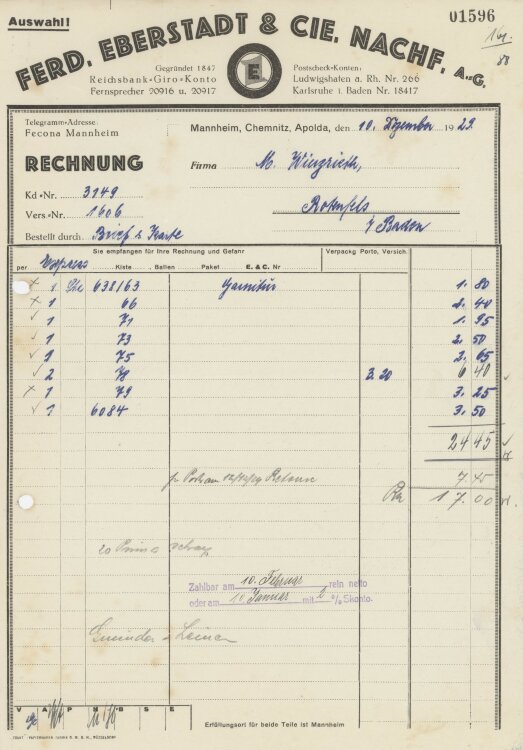 Auswahl!
01596
FERD. EBERSTADT & CIE. NACHF. A.-G.
Gegründet 1847
Reichsbank-Giro-Konto
Fernsprecher 20916 u. 20917
E
Postscheck-Konten:
Ludwigshafen a. Rh. Nr. 266
Karlsruhe i. Baden Nr. 18417
Telegramm-Adresse:
Fecona Mannheim
Mannheim, Chemnitz, Apolda, den 10. Dezember 1929.
RECHNUNG
Firma M. Wingrieth,
Kd.-Nr. 3149
Vers-Nr. 1606
Rotenfels
Bestellt durch Brief & Karte
i/ Baden
Sie empfangen für Ihre Rechnung und Gefahr
Verpackg Porto, Versich.
per Kiste Ballen Paket E. & C. Nr
1 638/63 Garnitur 1. 80
1 66 2. 40
1 71 1. 95
1 73 2. 50
1 75 2. 65
2 78 3. 20 6 40
1 79 3. 25
1 6084 3. 50
24 45
7. 45
17. 00
Zahlbar am 10. Februar rein netto
oder am 10 Januar mit 2 % Skonto.
V A P N B S E
Erfüllungsort für beide Teile ist Mannheim